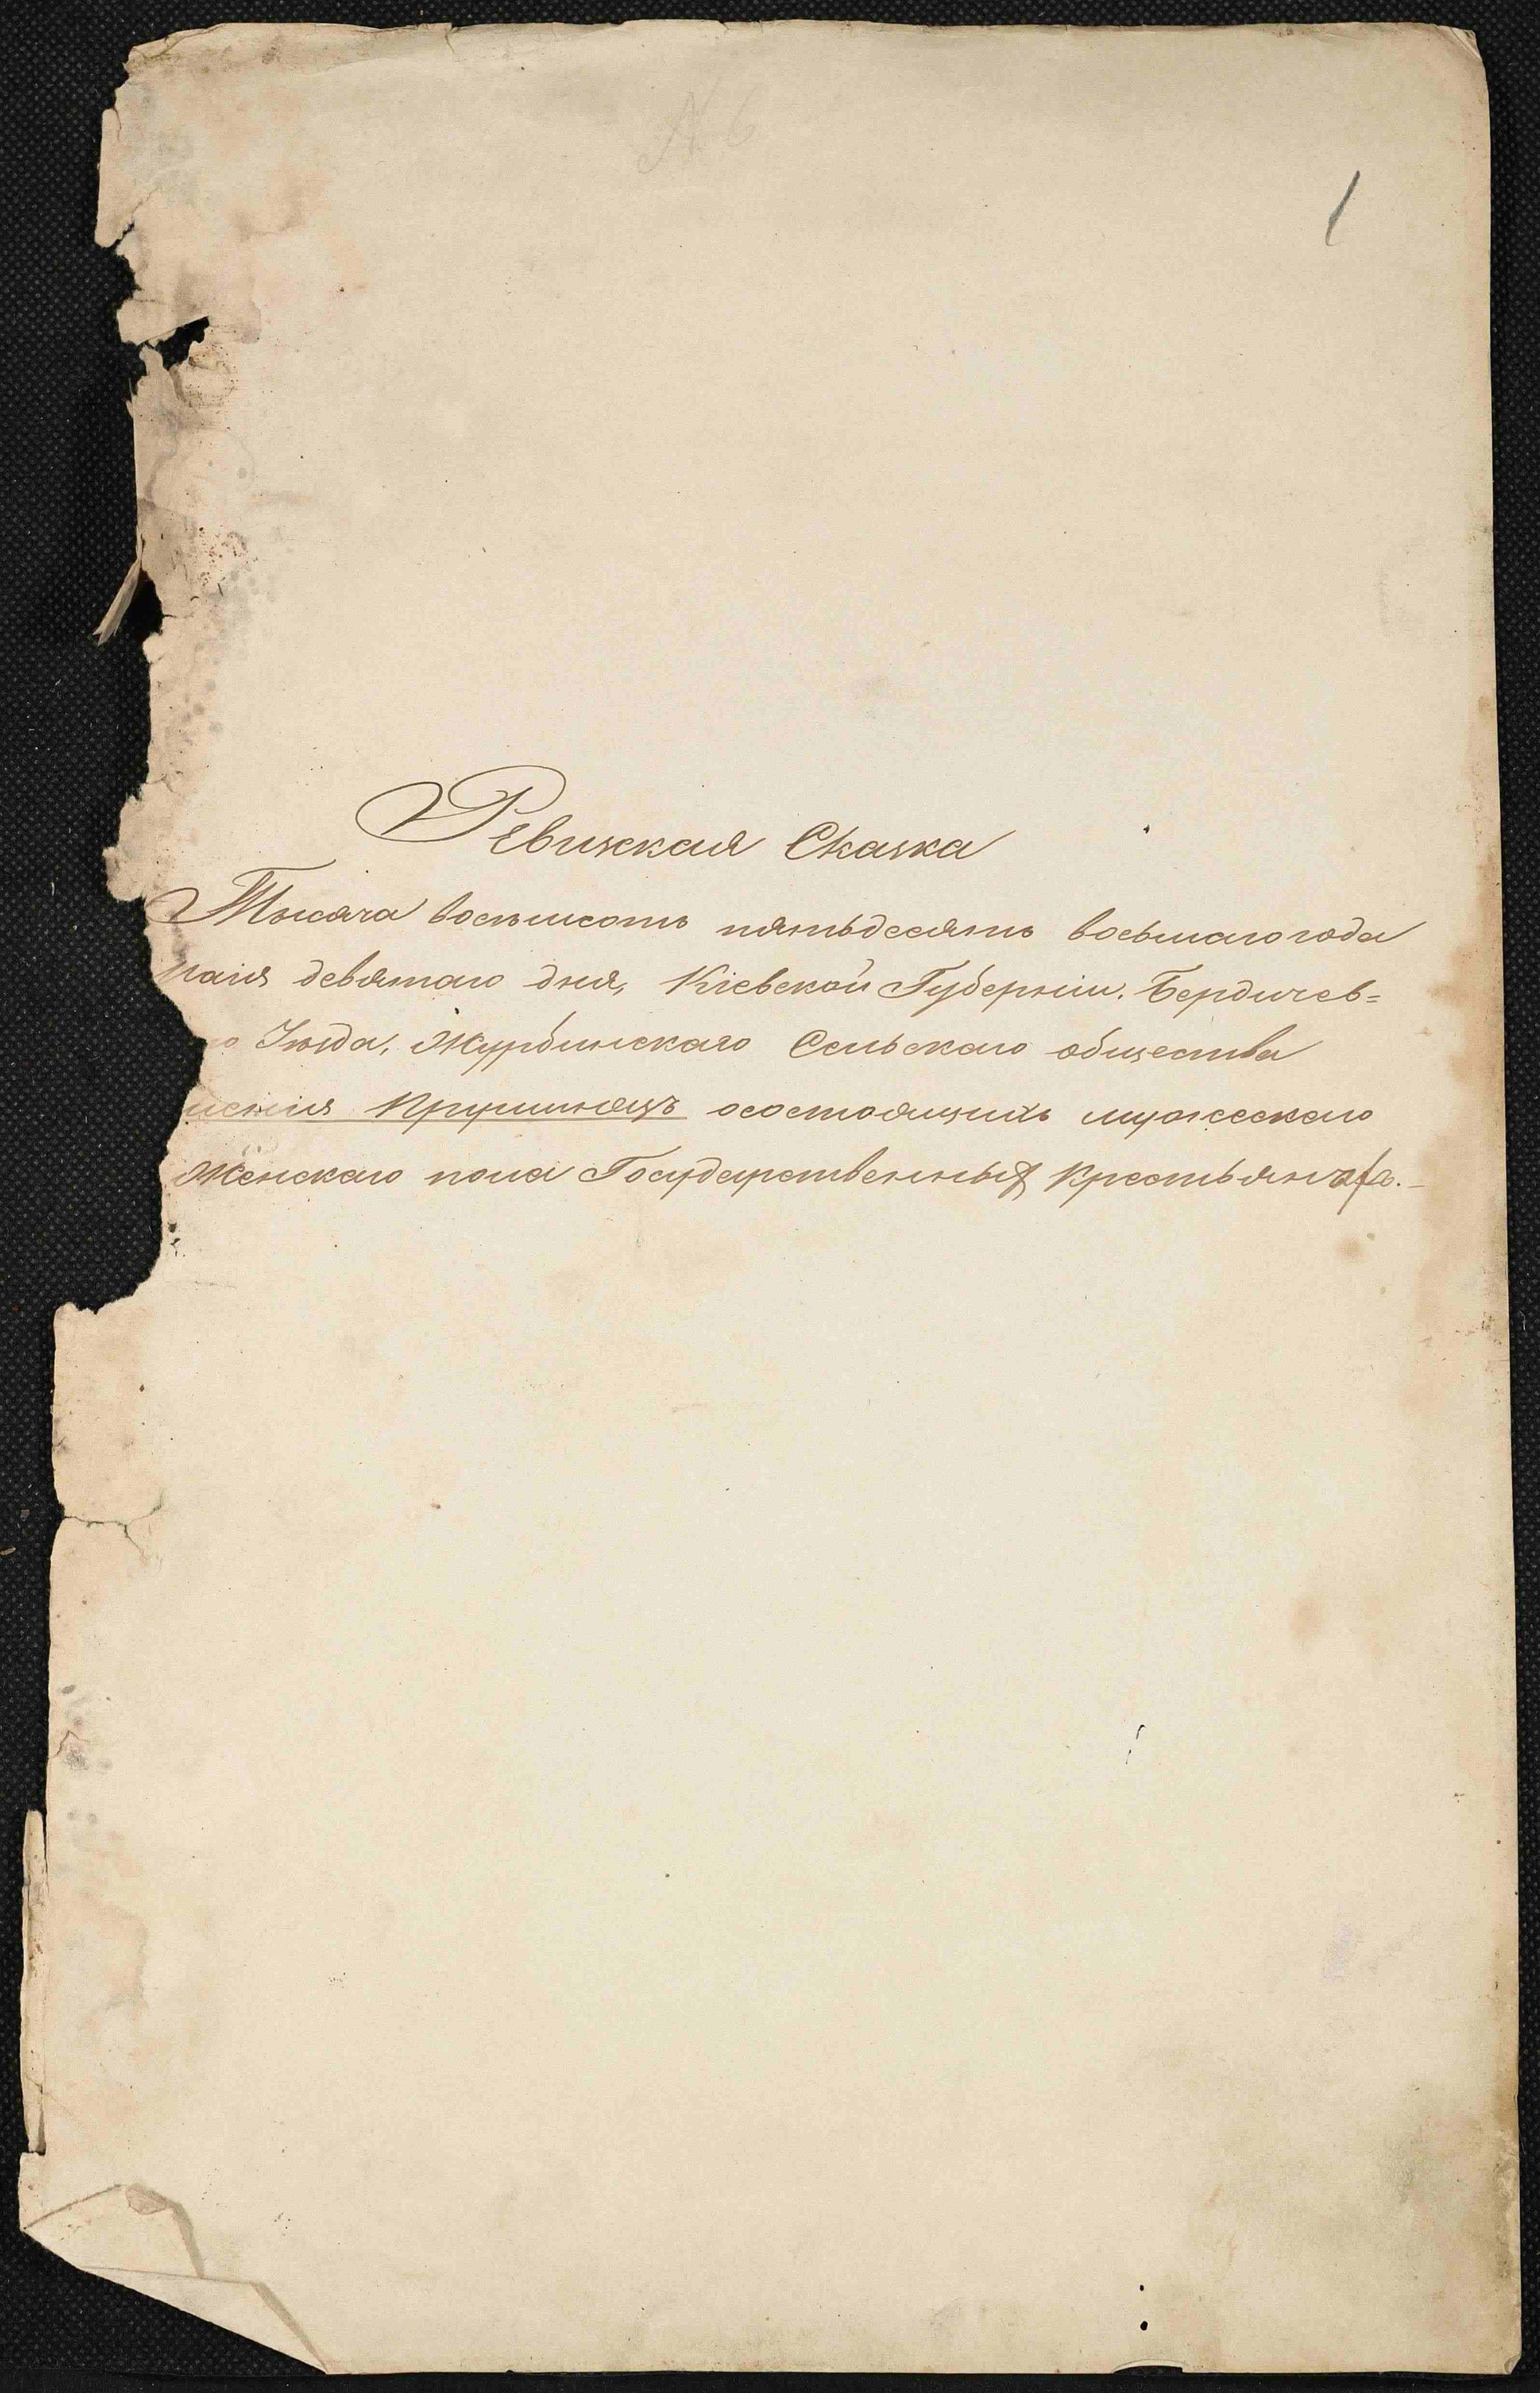 № 6
1
Ревизская Сказка
Тысяча восемьсотъ пятьдесятъ восьмаго года
маія девятаго дня, Кіевской Губерніи. Бердичев=
го Уѣзда, Журбинскаго Сельскаго общества
Крушинецъ осостоящихъ мужескаго
Женскаго пола Государственных Крестьянахъ.